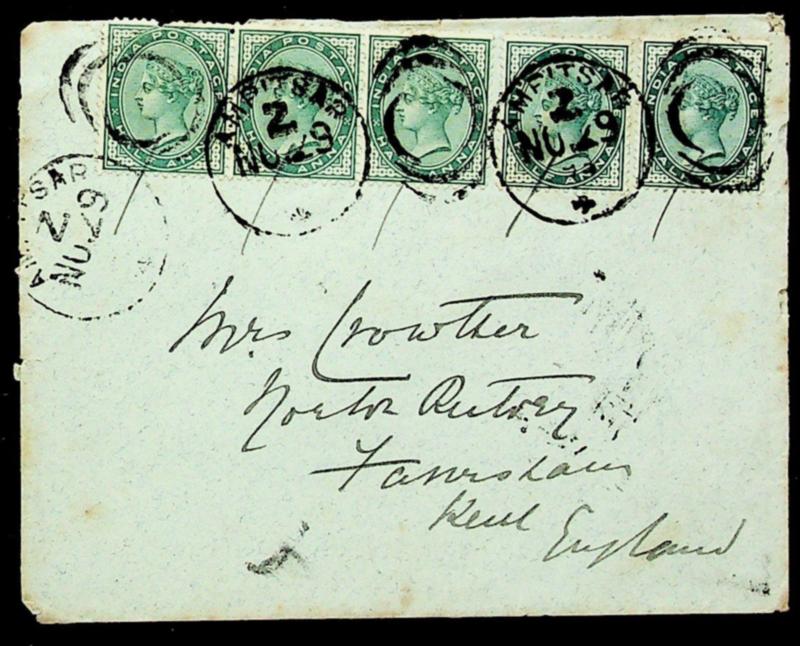 INDIA POSTAGE
HALF ANNA
INDIA POSTAGE
HALF ANNA
INDIA POSTAGE
HALF ANNA
HALF ANNA
INDIA POSTAGE
HALF ANNA
AMRITSAR
2
NO 29
AMRITSAR
2
NO 29
AMRITSAR
2
NO 29
Mrs Crowther
Norton Rectory
Faversham
Kent England